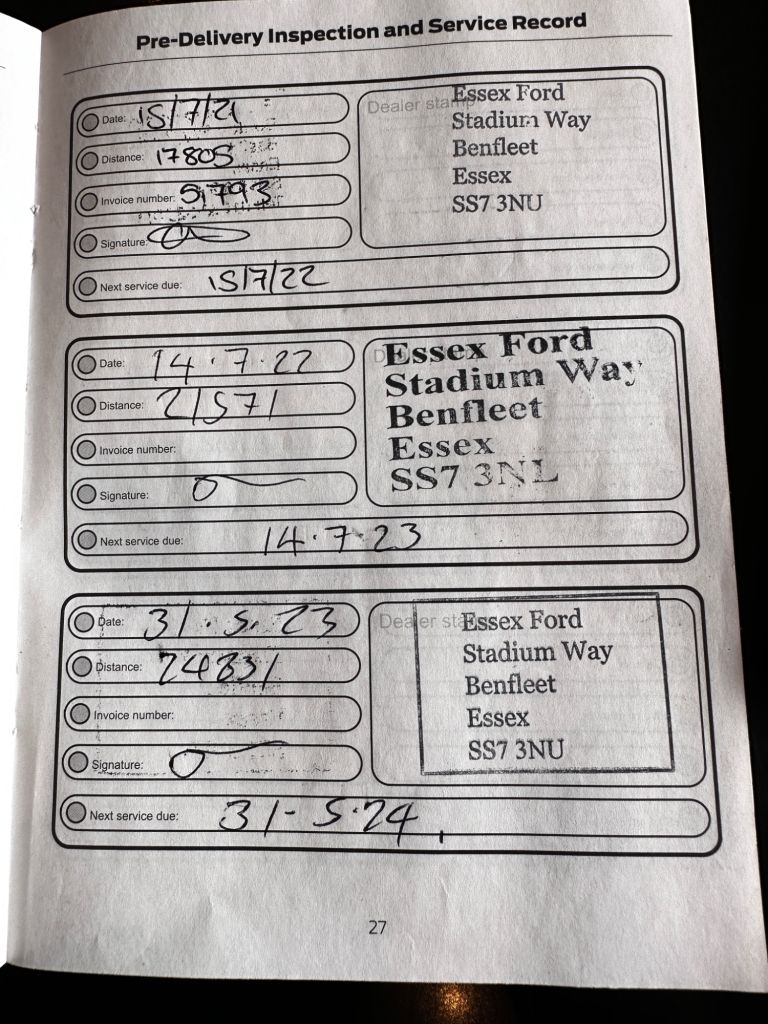 Pre-Delivery Inspection and Service Record
Date: 15/7/21
Distance: 17805
Invoice number: 51793
Signature:
Next service due: 15/7/22
Dealer stamp
Essex Ford
Stadium Way
Benfleet
Essex
SS7 3NU
Date: 14.7.22
Distance: 21571
Invoice number:
Signature:
Next service due: 14.7.23
Essex Ford
Stadium Way
Benfleet
Essex
SS7 3NU
Date: 31.5.23
Distance: 24831
Invoice number:
Signature:
Next service due: 31-5.24
Dealer sta
Essex Ford
Stadium Way
Benfleet
Essex
SS7 3NU
27